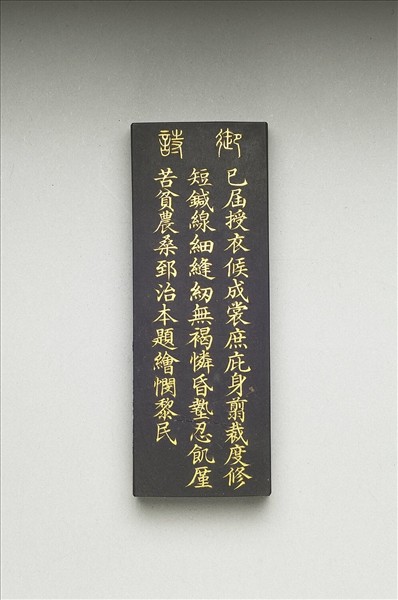 御詩
已屆授衣候成裳庶庇身翦裁度修
短鍼線細縫紉無褐憐昏墊忍飢廑
苦貧農桑郅治本題繪憫黎民